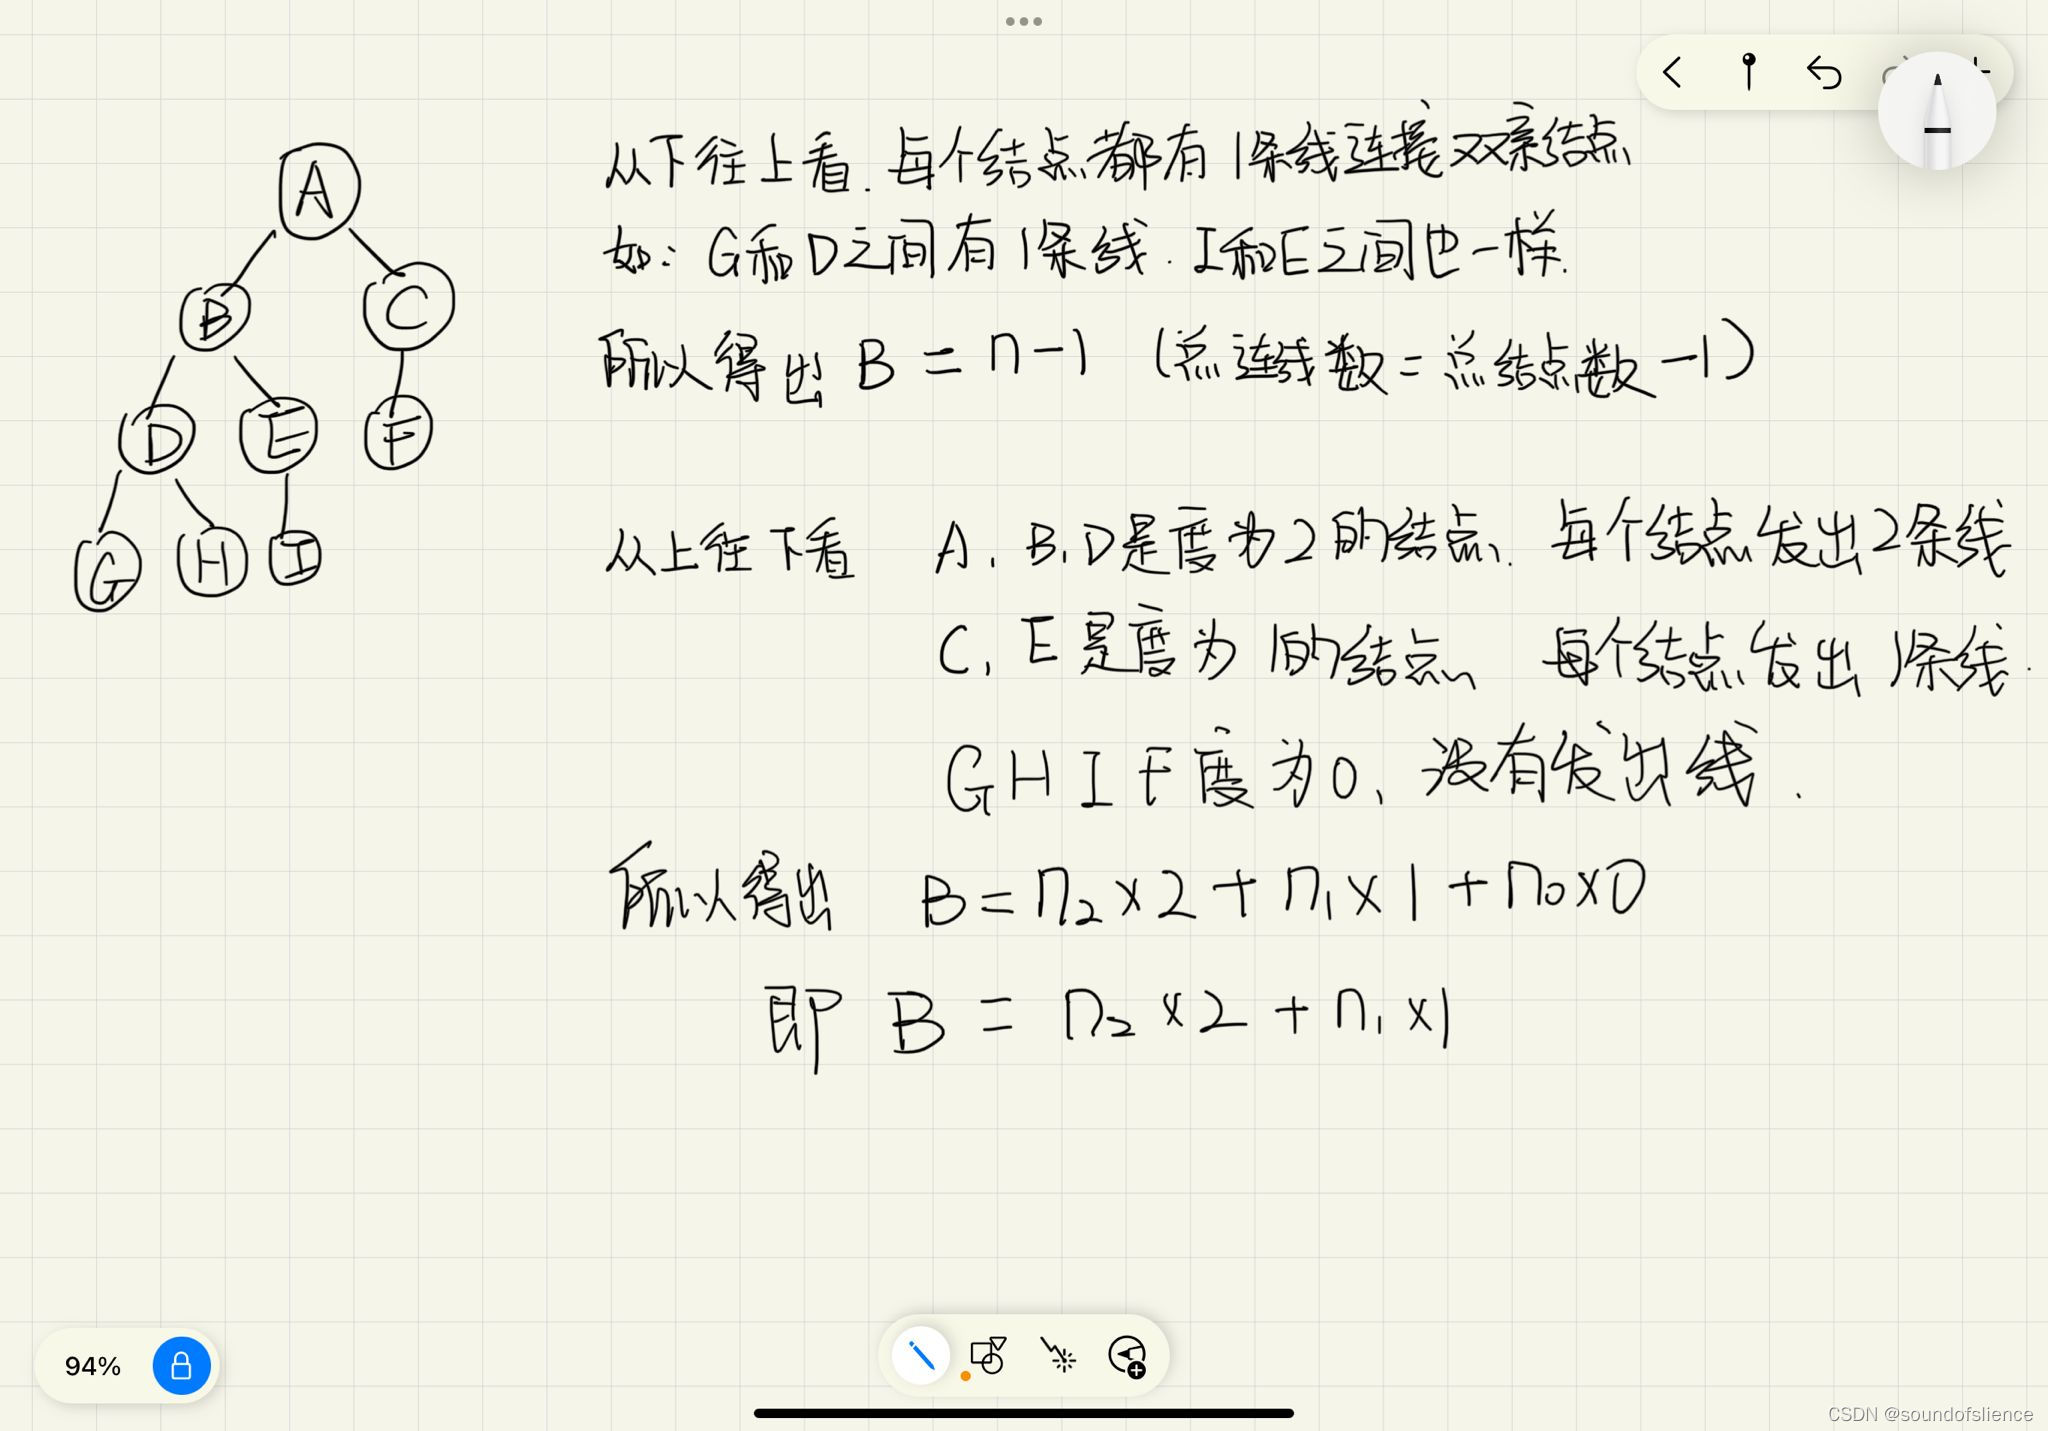 从下往上看.每个结点都有1条线连接双亲结点
如：G和D之间有1条线.I和E之间也一样.
所以得出 B = n-1 (总连线数=总结点数-1)
从上往下看 A、B、D是度为2的结点、每个结点发出2条线
C、E是度为1的结点、每个结点发出1条线.
G H I F度为0、没有发出线.
所以得出 B=n₂×2+n₁×1+n₀×0
即 B = n₂×2+n₁×1
A
B C
D E F
G H I
94%
CSDN @soundofslience